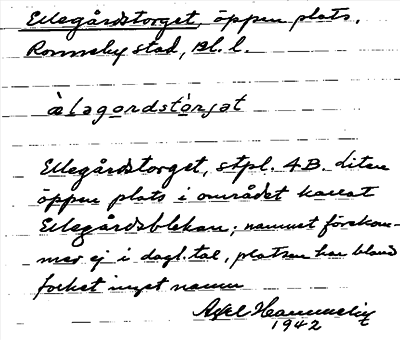 Ellegårdstorget, öppen plats,
Ronneby stad, Bl. l.
æ̀lagordstòrjat
Ellegårdstorget, stpl. 4B. Liten
öppen plats i området kallat
Ellegårdsblekan; namnet förekom-
mer ej i dagl. tal, platsen har bland
folket inget namn
Axel
1942